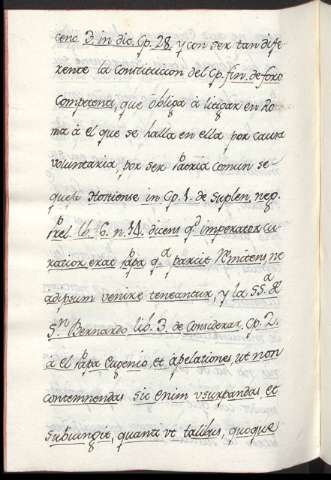 cenc 3. in dic. Cp. 28. y con ser tan dife
rente la Constitucion del Cp. fin. de foro
Competenti, que obliga à litigar en Ro
ma à el que se halla en ella por causa
voluntaria, por ser Patria comun se
queti Hostiense in Cp. 1. de Suplen. neg.
Prel. lb. 6. n. 14. dicens qd. imperator cu
ratior erat Papa qa. parcit Remitens ne
ad ipsum venire teneantur, y la 55. de
Sn. Bernardo lib. 3. de Considerat. Cp. 2.
à el Papa Eugenio, et apelationes, ut non
contemnendas sic enim usurpandas et
subiungit, quanta vt talibus, quoque